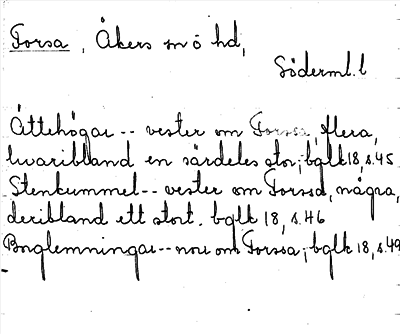 Forsa, Åkers sn ö hd,
Söderml. l
Ättehögar -- vester om Forssa, flera,
hvaribland en särdeles stor; bglk 18, s. 45
Stenkummel -- vester om Forssa, några,
deribland ett stort. bglk 18, s. 46
Borglemningar -- norr om Forssa; bglk 18, s. 49